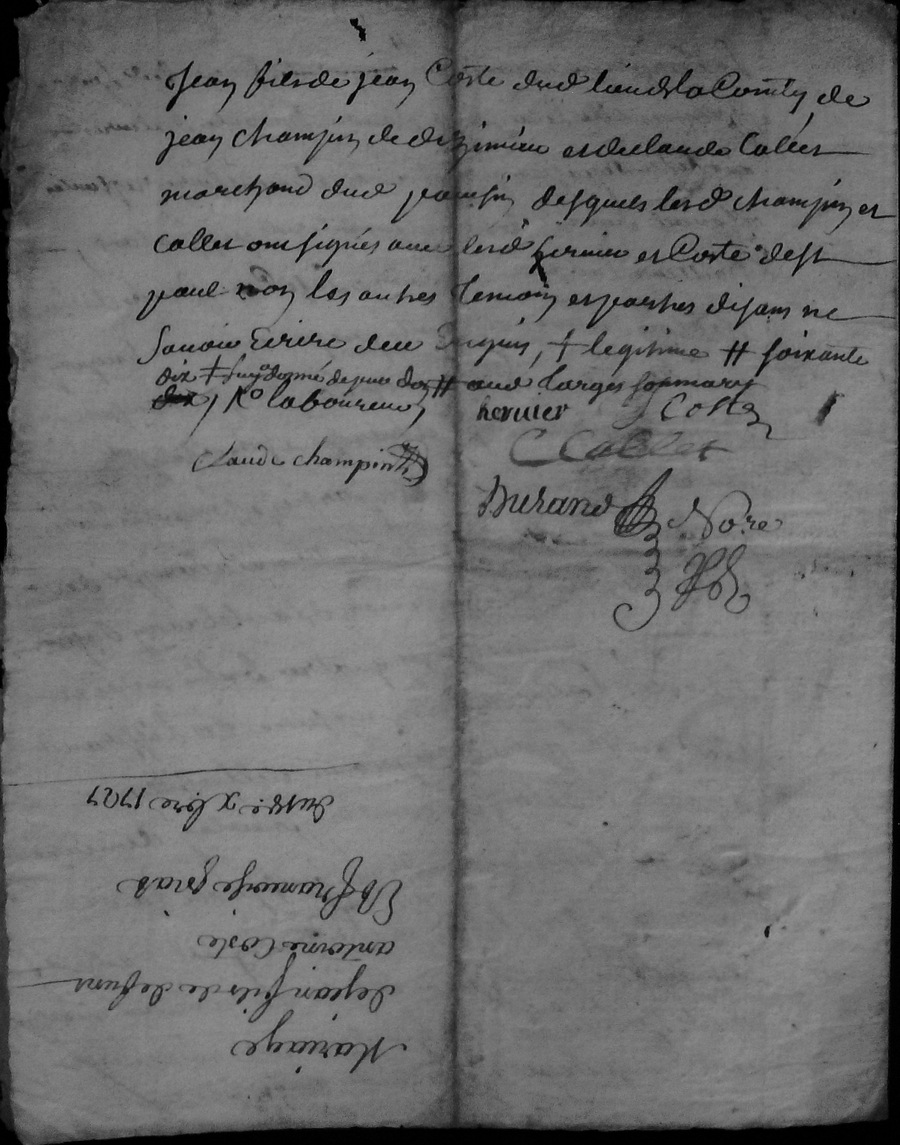 Jean fils de jean Coste dud lieu de la Comty de
jean champin de dizimieu et de claude Collet
marchand dud desquels lesd champin et
collet ont signés avec lesd hernier et Coste de st
paul non les autres temoins et parties disant ne
savoir Ecrire de ce Enquis, + legitime # soixante
dix + # aud larges sommary
Ro laboureur,
hernier J Coste
C Collet
claude champin
Durand Nore
Mariage
de jean fils de defunt
antoine Coste
Et framonge grat
Du 18e xbre 1727